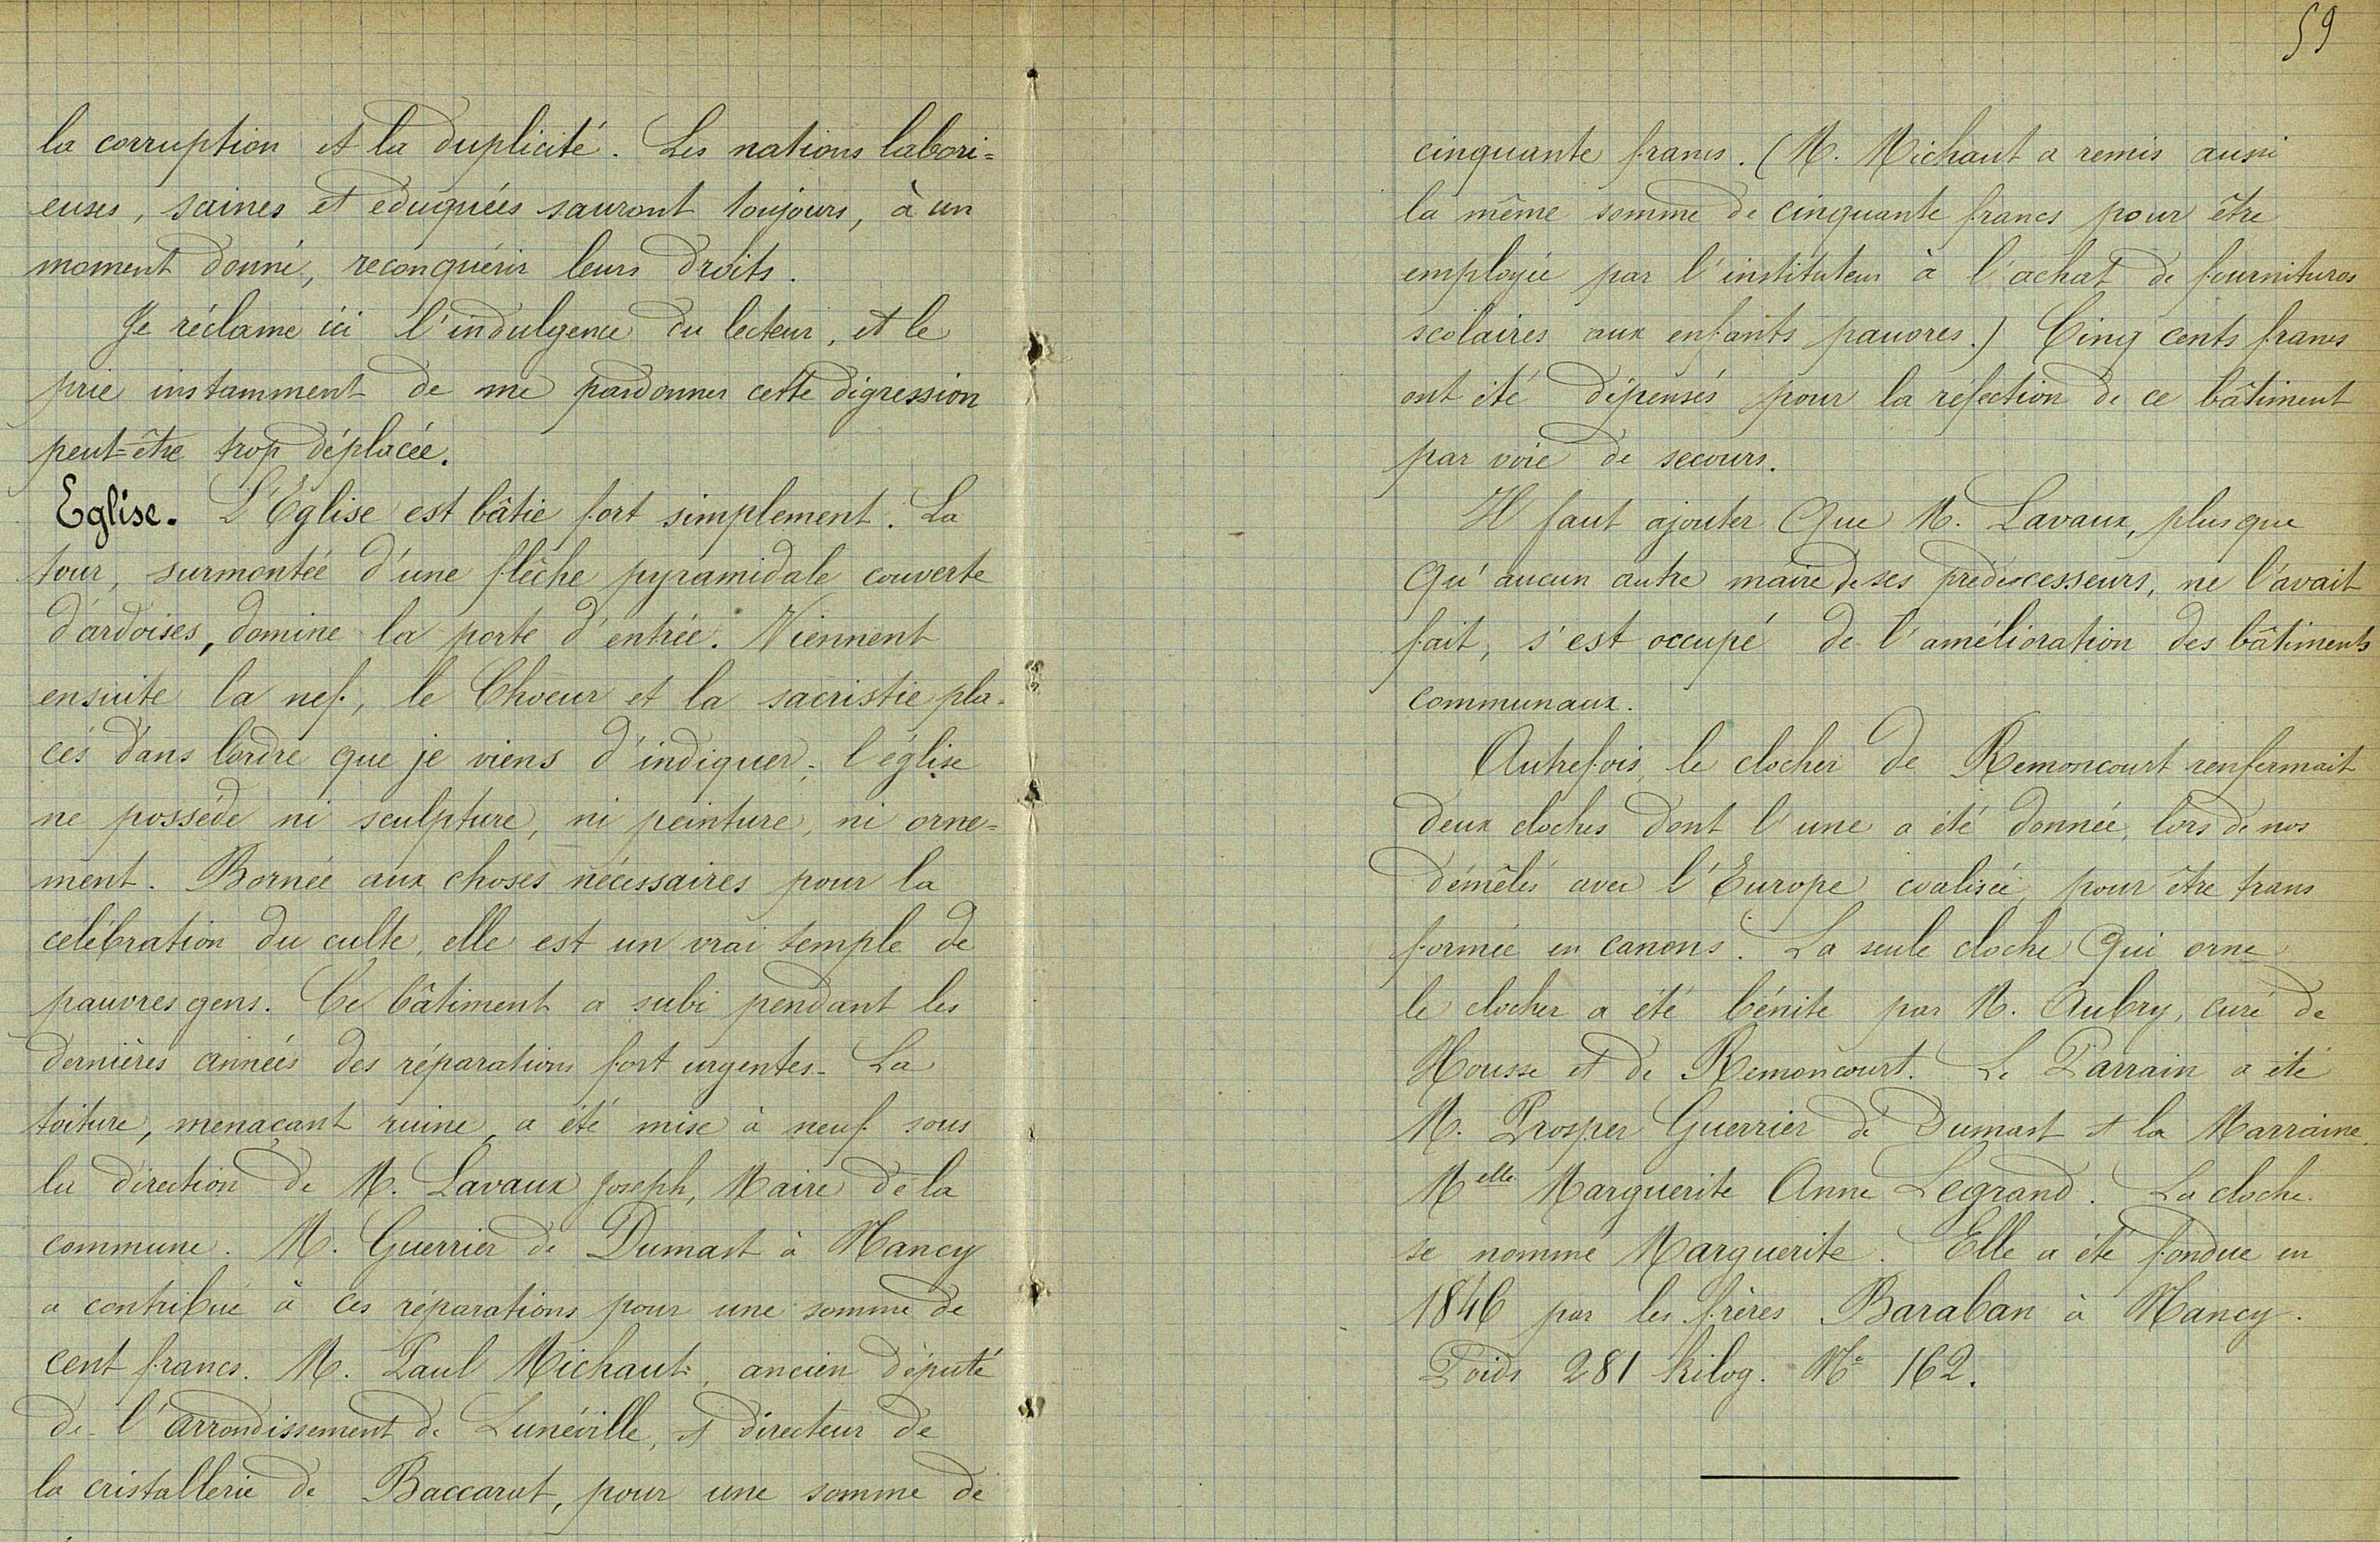 la corruption et la duplicité. Les nations labori=
euses, saines et eduquées sauront toujours, à un
moment donné, reconquérir leurs droits.
Je réclame ici l'indulgence du lecteur, et le
prie instamment de me pardonner cette digression
peut-être trop déplacée.
Eglise. L'Eglise est bâtie fort simplement. La
tour, surmontée d'une flêche pyramidale couverte
d'ardoises, domine la porte d'entrée. Viennent
ensuite la nef, le Choeur et la sacristie pla-
cés dans l'ordre que je viens d'indiquer; l'église
ne posséde ni sculpture, ni peinture, ni orne=
ment. Bornée aux choses nécessaires pour la
célébration du culte, elle est un vrai temple de
pauvres gens. Ce bâtiment a subi pendant les
dernières années des réparations fort urgentes. La
toiture, menaçant ruine, a été mise à neuf sous
la direction de M. Lavaux Joseph, Maire de la
commune. M. Guerrier de Dumast à Nancy
a contribué à ces réparations pour une somme de
cent francs. M. Paul Michaut, ancien député
de l'arrondissement de Lunéville, et directeur de
la cristallerie de Baccarat, pour une somme de
59
cinquante francs. (M. Michaut a remis aussi
la même somme de cinquante francs pour être
employée par l'instituteur à l'achat de fournitures
scolaires aux enfants pauvres.) Cinq cents francs
ont été dépensés pour la réfection de ce bâtiment
par voie de secours.
Il faut ajouter que M. Lavaux, plus que
qu'aucun autre maire de ses prédécesseurs, ne l'avait
fait, s'est occupé de l'amélioration des bâtiments
communaux.
Autrefois, le clocher de Remoncourt renfermait
deux cloches dont l'une a été donnée, lors de nos
démêlés avec l'Europe coalisée, pour être trans
formée en canons. La seule cloche qui orne
le clocher a été bénite par M. Aubry, curé de
Mousse et de Remoncourt. Le Parrain a été
M. Prosper Guerrier de Dumast et la Marraine
Melle Marguerite Anne Legrand. La cloche
se nomme Marguerite. Elle a été fondue en
1846 par les frères Baraban à Nancy.
Poids 281 kilog. No 162.